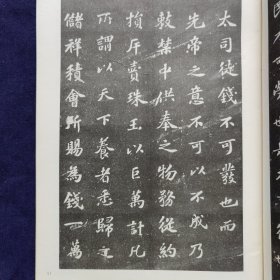 太司徒錢不可發也而
先帝之意不可以不成乃
敕禁中供奉之物務從約
損斥賣珠玉以巨萬計凡
所謂以天下養者悉歸之
儲祥積會所賜為錢一萬